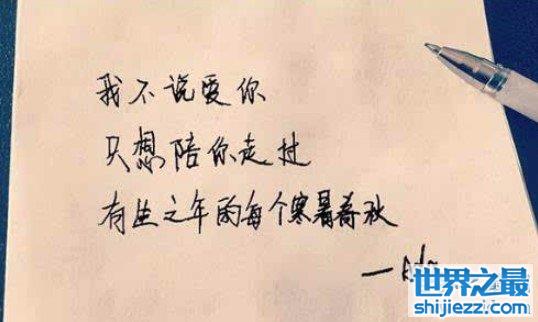 我不说爱你
只想陪你走过
有生之年的每个寒暑春秋
世界之最
shijiezz.com